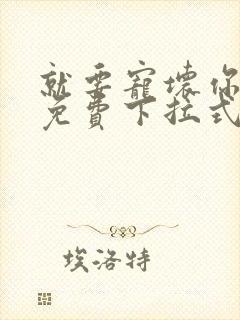 就要寵壞你
免費下拉式
埃洛特